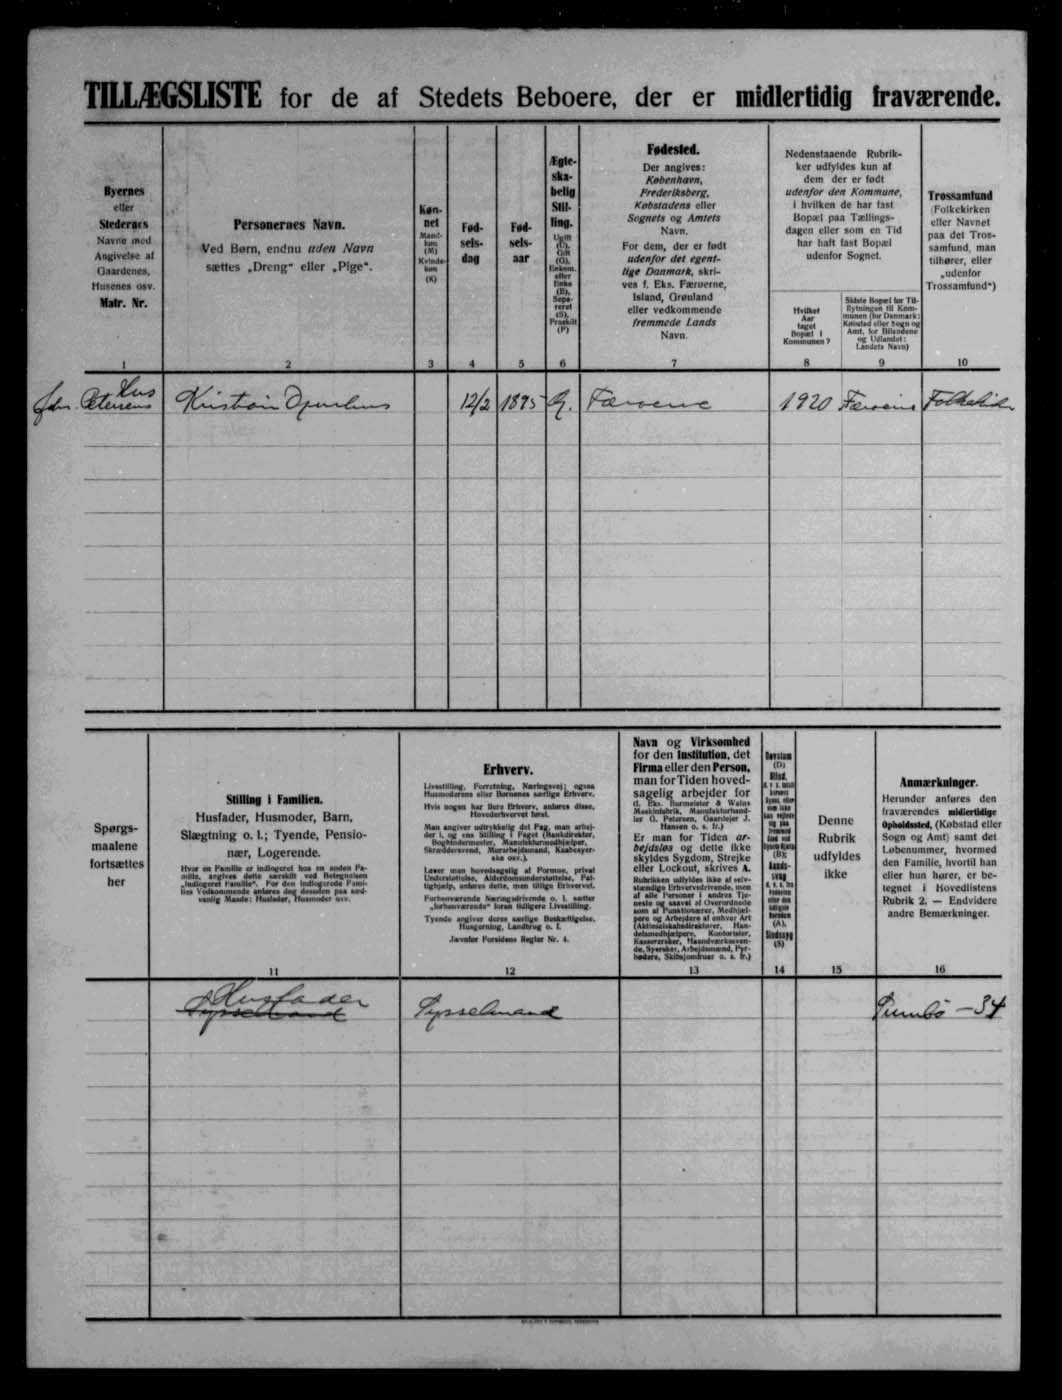 TILLÆGSLISTE for de af Stedets Beboere, der er midlertidig fraværende.
Byernes
eller
Stedernes
Navne med
Angivelse af
Gaardenes,
Husenes osv.
Matr. Nr.
1
Personernes Navn.
Ved Børn, endnu uden Navn
sættes „Dreng“ eller „Pige“.
2
Køn-
net
Mand-
køn
(M)
Kvinde-
køn
(K)
3
Fød-
sels-
dag
4
Fød-
sels-
aar
5
Ægte-
ska-
belig
Stil-
ling.
Ugift
(U),
Gift
(G),
Enkem.
eller
Enke
(E),
Sepa-
reret
(S),
Fraskilt
(F)
6
Fødested.
Der angives:
København,
Frederiksberg,
Købstadens eller
Sognets og Amtets
Navn.
For dem, der er født
udenfor det egent-
lige Danmark, skri-
ves f. Eks. Færøerne,
Island, Grønland
eller vedkommende
fremmede Lands
Navn.
7
Nedenstaaende Rubrik-
ker udfyldes kun af
dem der er født
udenfor den Kommune,
i hvilken de har fast
Bopæl paa Tællings-
dagen eller som en Tid
har haft fast Bopæl
udenfor Sognet.
Hvilket
Aar
taget
Bopæl i
Kommunen?
8
Sidste Bopæl før Til-
flytningen til Kom-
munen (for Danmark:
Købstad eller Sogn og
Amt, for Bilandene
og Udlandet:
Landets Navn)
9
Trossamfund
(Folkekirken
eller Navnet
paa det Tros-
samfund, man
tilhører, eller
„udenfor
Trossamfund“)
10
Hus
Petersens Kristian Djurhuus 12/2 1895 G. Færøerne 1920 Færøerne Folkekirken
Spørgs-
maalene
fortsættes
her
Stilling i Familien.
Husfader, Husmoder, Barn,
Slægtning o. l.; Tyende, Pensio-
nær, Logerende.
Hvor en Familie er indlogeret hos en anden Fa-
milie, angives dette særskilt ved Betegnelsen
„Indlogeret Familie“. For den indlogerede Fami-
lies Vedkommende anføres dog desuden paa sæd-
vanlig Maade: Husfader, Husmoder osv.
11
Erhverv.
Livsstilling, Forretning, Næringsvej; ogsaa
Husmoderens eller Børnenes særlige Erhverv.
Hvis nogen har flere Erhverv, anføres disse,
Hovederhvervet først.
Man angiver udtrykkelig det Fag, man arbej-
der i, og ens Stilling i Faget (Bankdirektør,
Bogbindermester, Manufakturmedhjælper,
Skræddersvend, Murarbejdsmand, Kaabesyer-
ske osv.).
Lever man hovedsagelig af Formue, privat
Understøttelse, Alderdomsunderstøttelse, Fat-
tighjælp, anføres dette, men tillige Erhvervet.
Forhenværende Næringsdrivende o. l. sætter
„forhenværende“ foran tidligere Livsstilling.
Tyende angiver deres særlige Beskæftigelse,
Husgerning, Landbrug o. l.
Jævnfør Forsidens Regler Nr. 4.
12
Navn og Virksomhed
for den Institution, det
Firma eller den Person,
man for Tiden hoved-
sagelig arbejder for
(f. Eks. Burmeister & Wains
Maskinfabrik, Manufakturhand-
ler G. Petersen, Gaardejer J.
Hansen o. s. fr.)
Er man for Tiden ar-
bejdsløs og dette ikke
skyldes Sygdom, Strejke
eller Lockout, skrives A.
Rubrikken udfyldes ikke af selv-
stændige Erhvervsdrivende, men
af alle Personer i andres Tje-
neste og saavel af Overordnede
som af Funktionærer, Medhjæl-
pere og Arbejdere af enhver Art
(Aktieselskabsdirektører, Han-
delsmedhjælpere, Kontorister,
Kassererskər, Haandværkssven-
de, Syersker, Arbejdsmænd, Fyr-
bødere, Skibsjomfruer o. s. fr.)
13
Døvstum
(D)
Blind,
(B);
Aands-
svag
(A),
Sindssyg
(S)
14
Denne
Rubrik
udfyldes
ikke
15
Anmærkninger.
Herunder anføres den
fraværendes midlertidige
Opholdssted, (Købstad eller
Sogn og Amt) samt det
Løbenummer, hvormed
den Familie, hvortil han
eller hun hører, er be-
tegnet i Hovedlistens
Rubrik 2. — Endvidere
andre Bemærkninger.
16
Husfader
Sysselmand Sysselmand Sumbø — 34